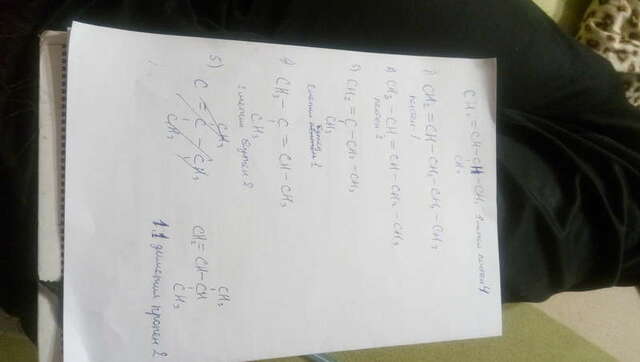 CH₂=CH-CH-CH₃
CH₃
1) CH₂=CH-CH₂-CH₂-CH₃
пентен 1
2) CH₃-CH=CH-CH₂-CH₃
пентен 2
3) CH₂=C-CH₂-CH₃
CH₃
2 метил бутен 1
4) CH₃-C=CH-CH₃
CH₃
2 метил бутен 2
5) C=C-CH₃
CH₃
CH₃
CH₂=CH-CH
CH₃
CH₃
1.1 диметил пропен 2